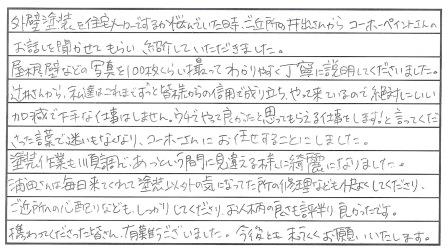 外壁塗装を住宅メーカーでするか悩んでいた時、ご近所の井出さんからコーホーペイントさんの
お話しを聞かせてもらい、紹介していただきました。
屋根壁などの写真を100枚くらい撮ってわかりやすく丁寧に説明してくださいました。
辻井さんから、私達はこれまでずっと皆様からの信用で成り立ち、やって来ているので絶対にいい
加減で下手な仕事はしません。うちでやって良かったと思ってもらえる仕事をします。と言ってくだ
さった言葉で迷いもなくなり、コーホーさんにお任せすることにしました。
塗装作業も順調で、あっという間に見違える様に綺麗になりました。
浦田さんは毎日来てくれて塗装以外の気になった所の修理なども快よくしてくださり、
ご近所への心配りなども、しっかりしてくださり、お人柄の良さも評判良かったです。
携わってくださった皆さん、有難うございました。今後とも末ながくお願いいたします。